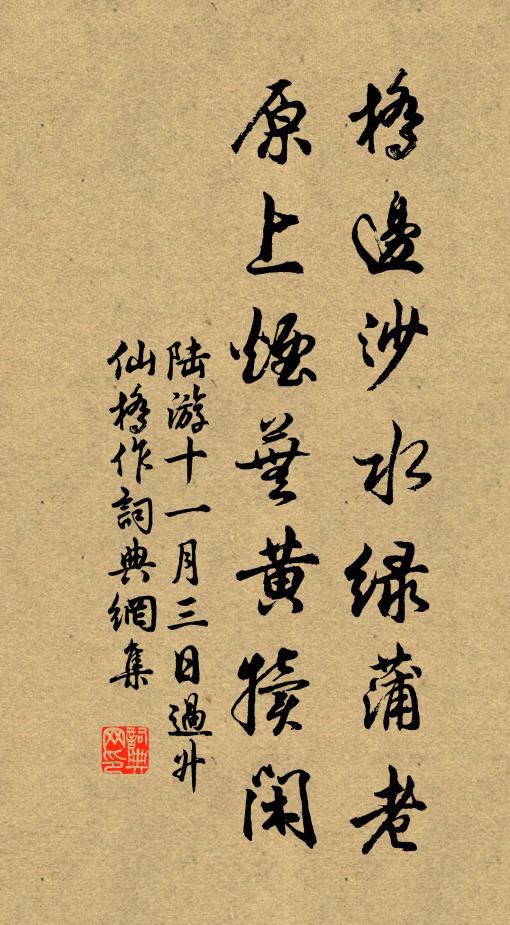 橋邊沙水綠蒲老
原上煙蕪黃犢閑
陆游十一月三日過升
仙橋作詞典網集
詞典网印